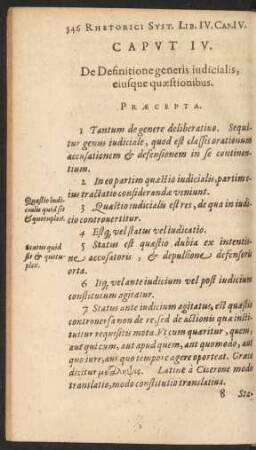 346 RHETORICI SYST. LIB. IV. CAP. IV.
CAPVT IV.
De Definitione generis iudicialis,
eiusque quæstionibus.
PRÆCEPTA.
1 Tantum de genere deliberatiuo. Sequi-
tur genus iudiciale, quod est classis orationum
accusationem & defensionem in se continen-
tium.
2. In eo partim quæstio iudicialis, partim e-
ius tractatio considerandæ veniunt.
Quæstio iudi-
cialis quid sit
& quotuplex.
3 Quæstio iudicialis est res, de qua in iudi-
cio controuertitur.
4 Estq; vel status vel iudicatio.
Status quid
sit & quotu-
plex.
5 Status est quæstio dubia ex intentio-
ne accusatoris, & depulsione defensoris
orta.
6 Isq; vel ante iudicium vel post iudicium
constitutum agitatur.
7 Status ante iudicium agitatus, est quæstio
controuersa non de re, sed de actionis quæ insti-
tuitur requisitis mota. Vt cum quæritur, quem,
aut qui cum, aut apud quem, aut quomodo, aut
quo iure, aut quo tempore agere oporteat. Græce
dicitur Latinè à Cicerone modo
translatio, modo constitutio translatiua.
8 Sta-